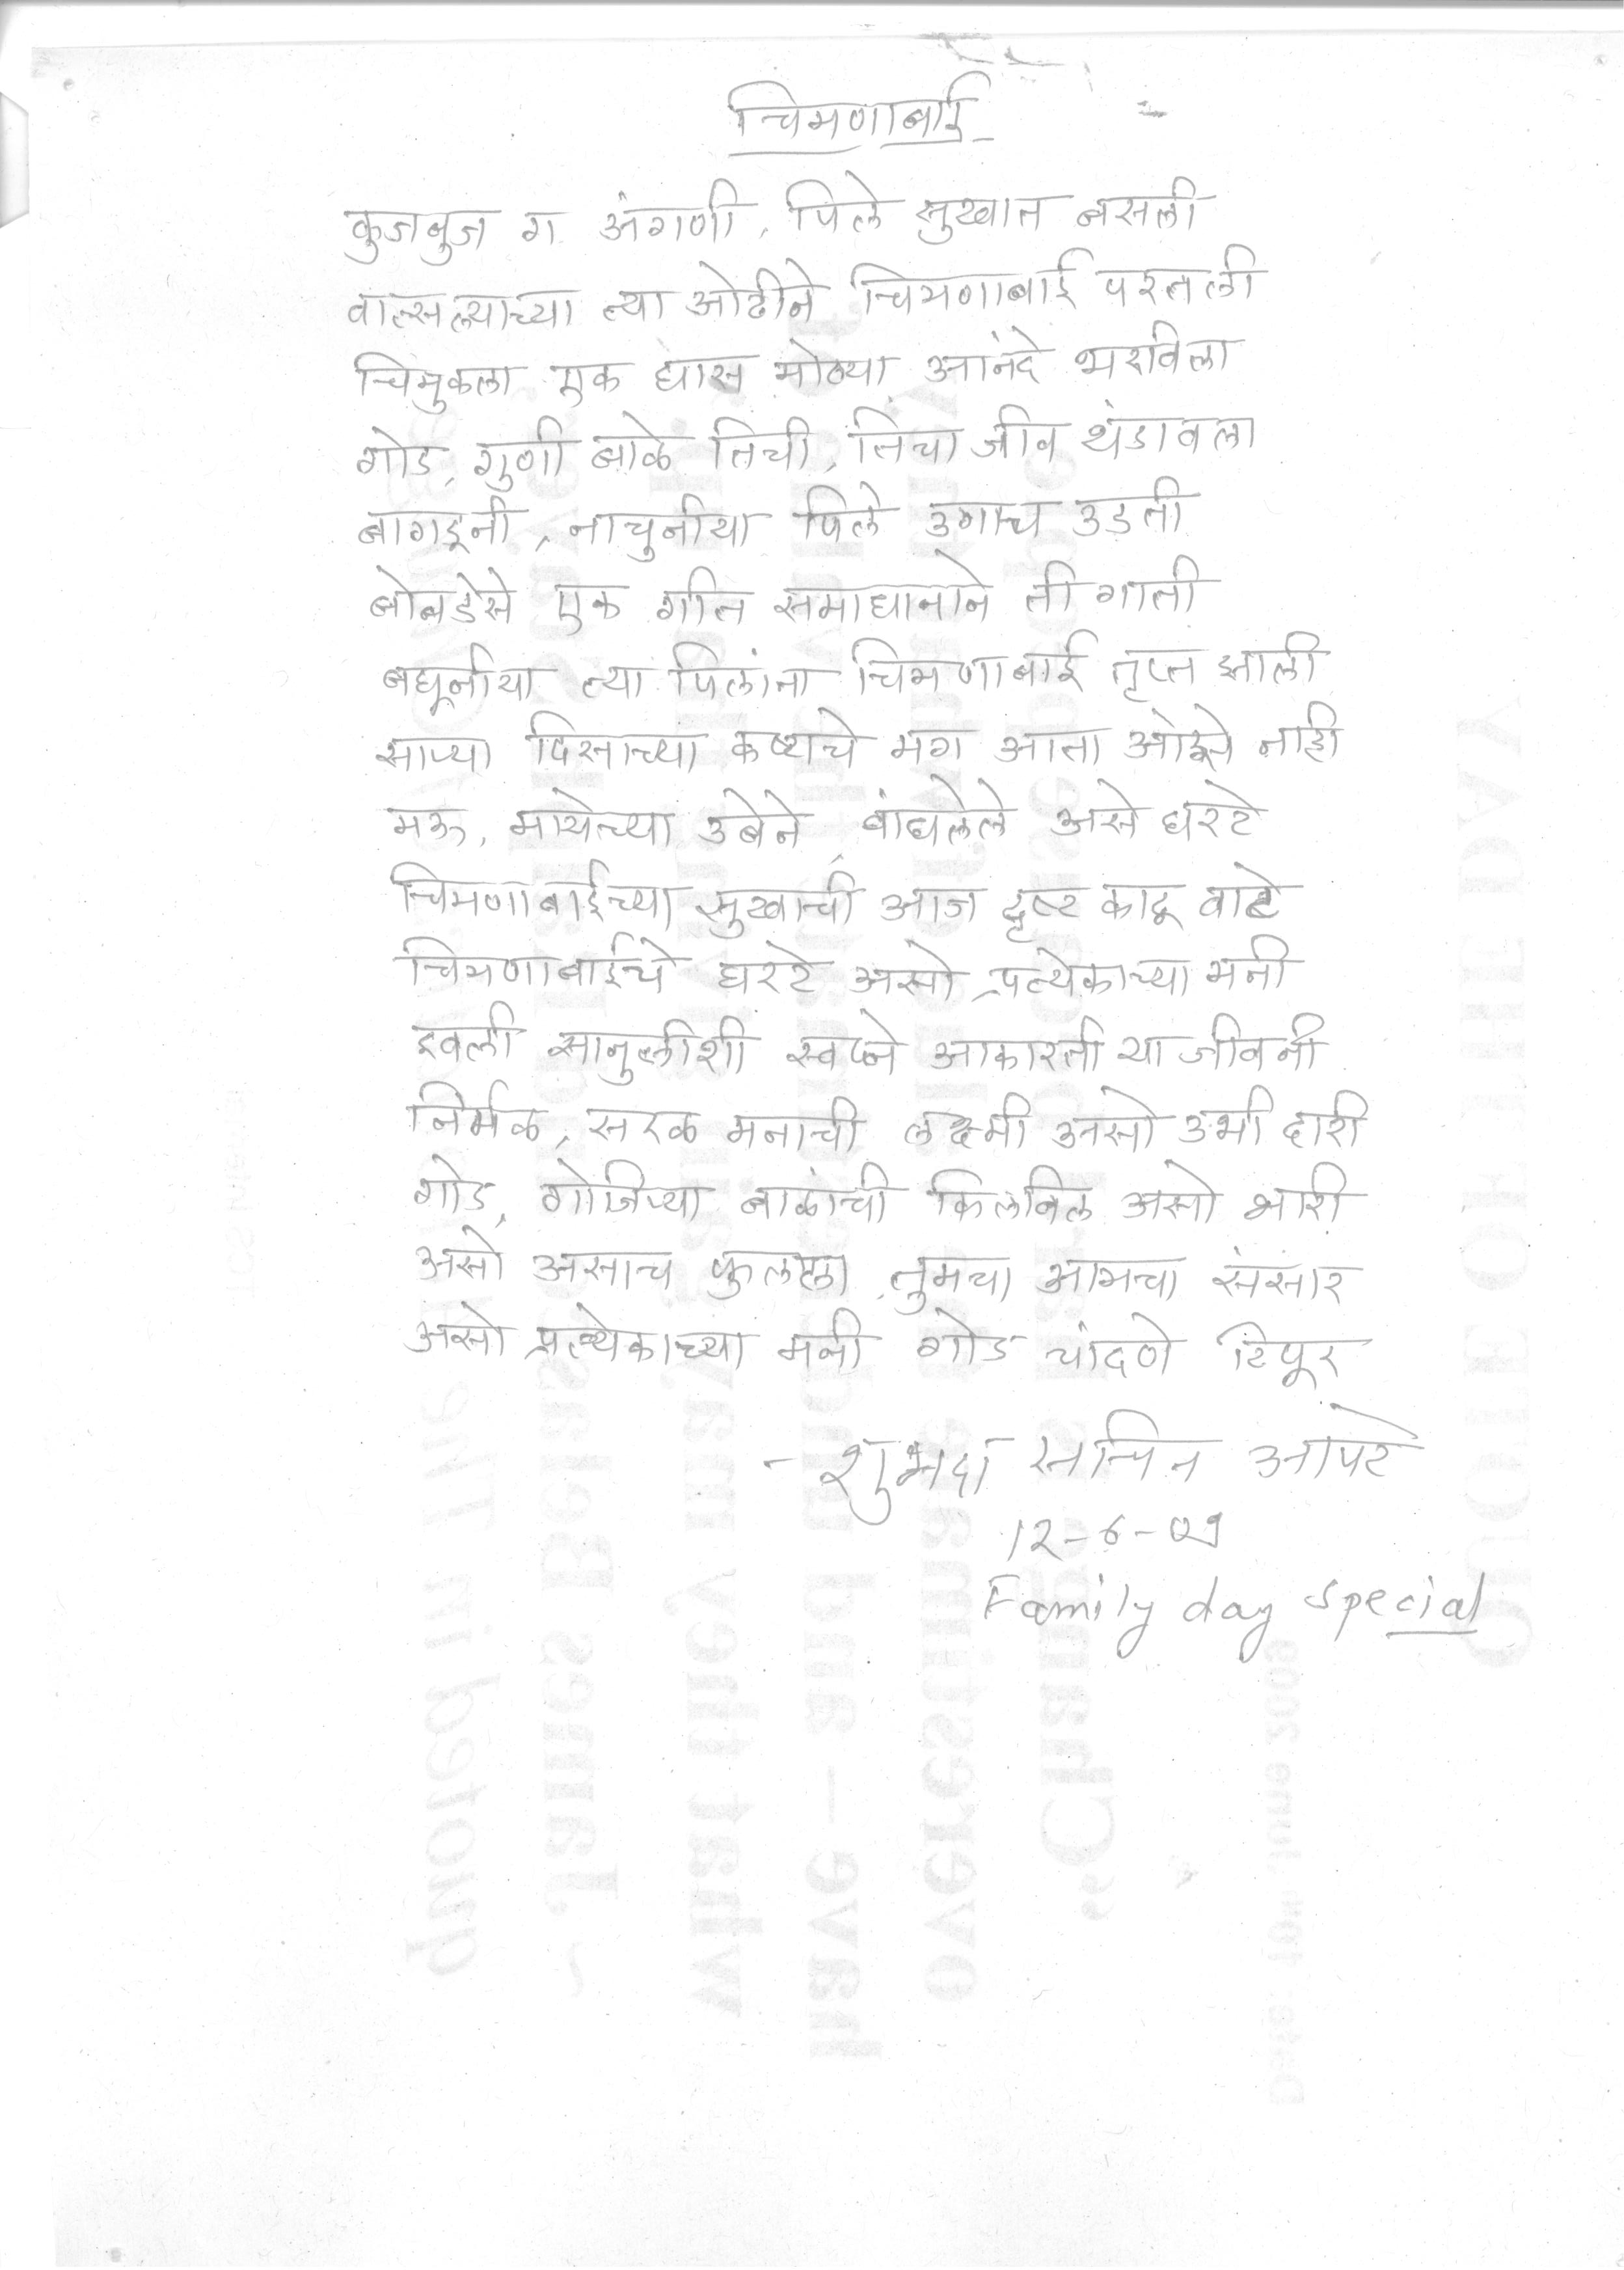 चिमणाबाई
कुजबुज ग अंगणी, पिले सुखात बसली
वात्सल्याच्या त्या ओढीने चिमणाबाई परतली
चिमुकला एक घास मोठ्या आनंदे भरविला
गोड, गुणी बाळे तिची, तिचा जीव थंडावला
बागडूनी, नाचुनीया पिले उगाच उडती
बोबडेसे एक गीत समाधानाने ती गाती
बघूनीया त्या पिलांना चिमणाबाई तृप्त झाली
साऱ्या दिसाच्या कष्टाचे मग आता ओझे नाही
मऊ, मायेच्या उबेने, बांधलेले असे घरटे
चिमणाबाईच्या सुखाची आज दृष्ट काढू वाटे
चिमणाबाईचे घरटे असो प्रत्येकाच्या मनी
इवली सानुलीशी स्वप्ने आकारती या जीवनी
निर्मळ, सरळ मनाची लक्ष्मी असो उभी दारी
गोड, गोजिऱ्या बाळांची किलबिल असो भारी
असो असाच फुलला, तुमचा आमचा संसार
असो प्रत्येकाच्या मनी गोड चांदणे टिपूर
- शुभदा सचिन आपटे
12-6-09
Family day special